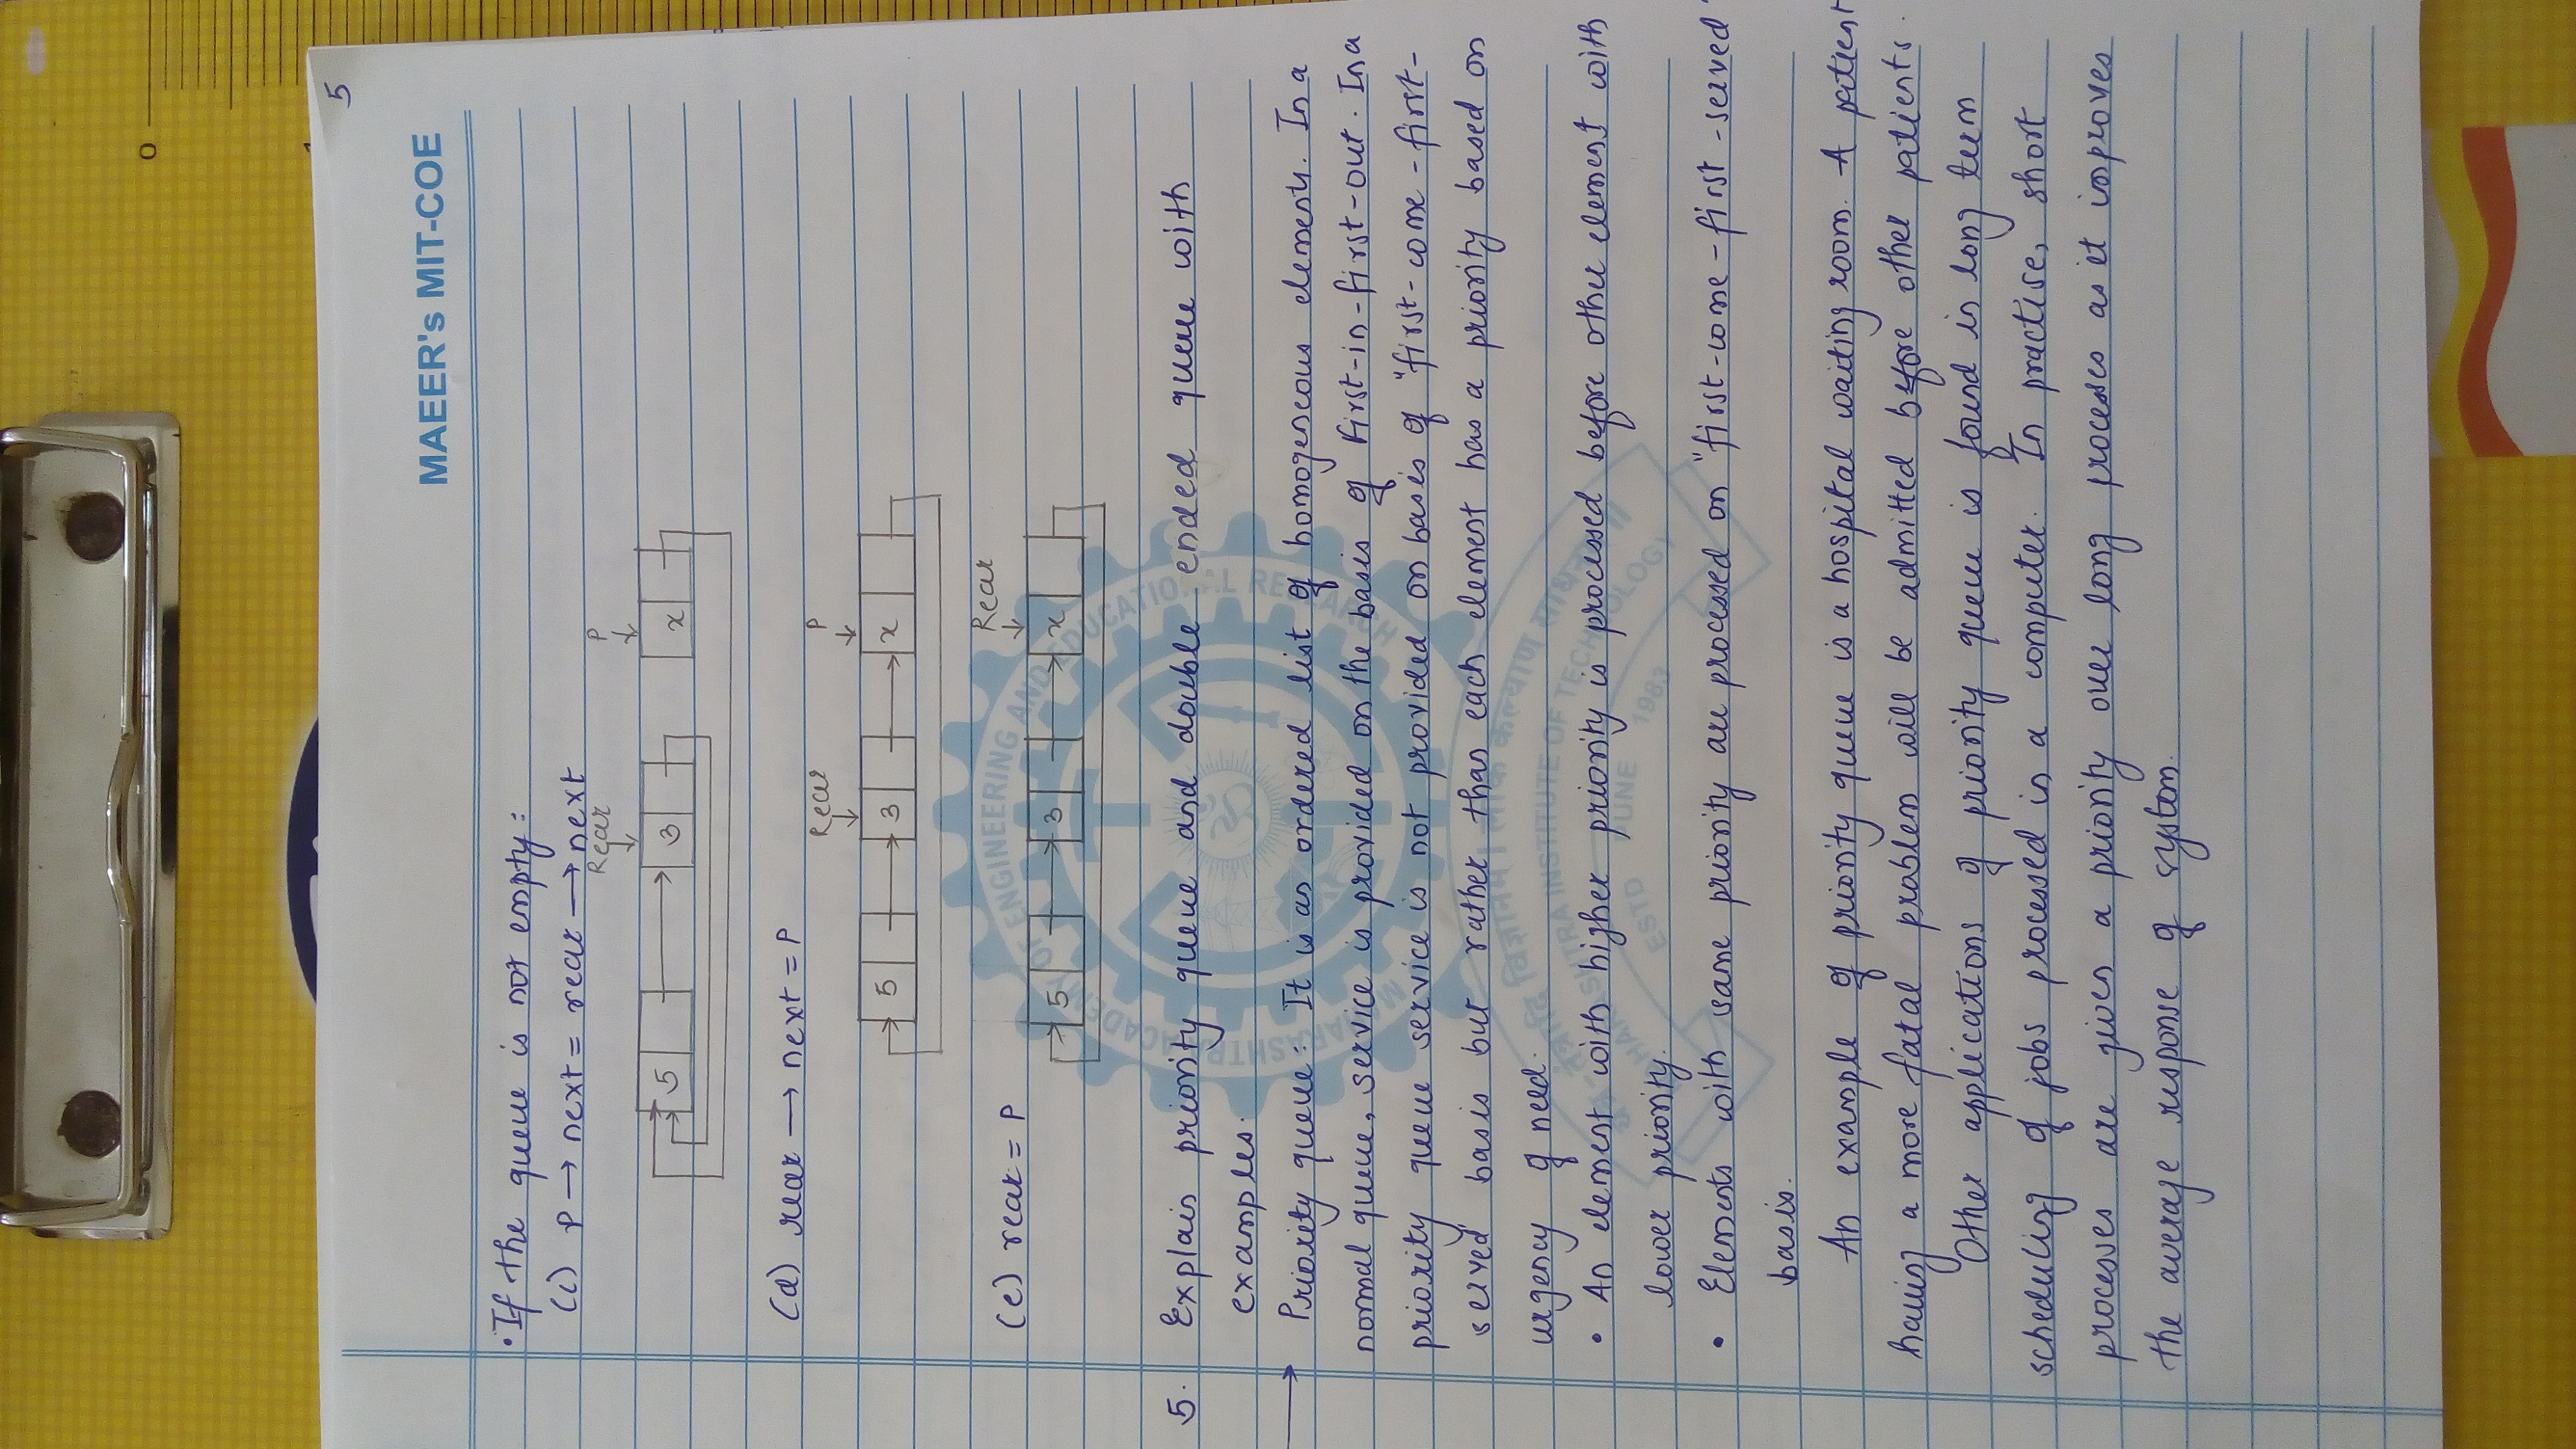 0
1
5
MAEER's MIT-COE
• If the queue is not empty:
(c) P → next = rear → next
Rear P
5 3 x
(d) rear → next = P
Rear P
5 3 x
(e) rear = P
Rear
5 3 x
5. Explain priority queue and double ended queue with
examples.
→ Priority queue: It is an ordered list of homogeneous elements. In a
normal queue, service is provided on the basis of first-in-first-out. In a
priority queue service is not provided on basis of "first-come-first-
served" basis but rather than each element has a priority based on
urgency of need.
• An element with higher priority is processed before other element with
lower priority.
• Elements with same priority are processed on "first-come-first-served"
basis.
An example of priority queue is a hospital waiting room. A patient
having a more fatal problem will be admitted before other patients.
Other applications of priority queue is found in long term
scheduling of jobs processed in a computer. In practise, short
processes are given a priority over long processes as it improves
the average response of system.
MAHARASHTRA ACADEMY OF ENGINEERING AND EDUCATIONAL RESEARCH
विज्ञानम् । लोक कल्याण साधनम्
MAHARASHTRA INSTITUTE OF TECHNOLOGY
ESTD JUNE 1983